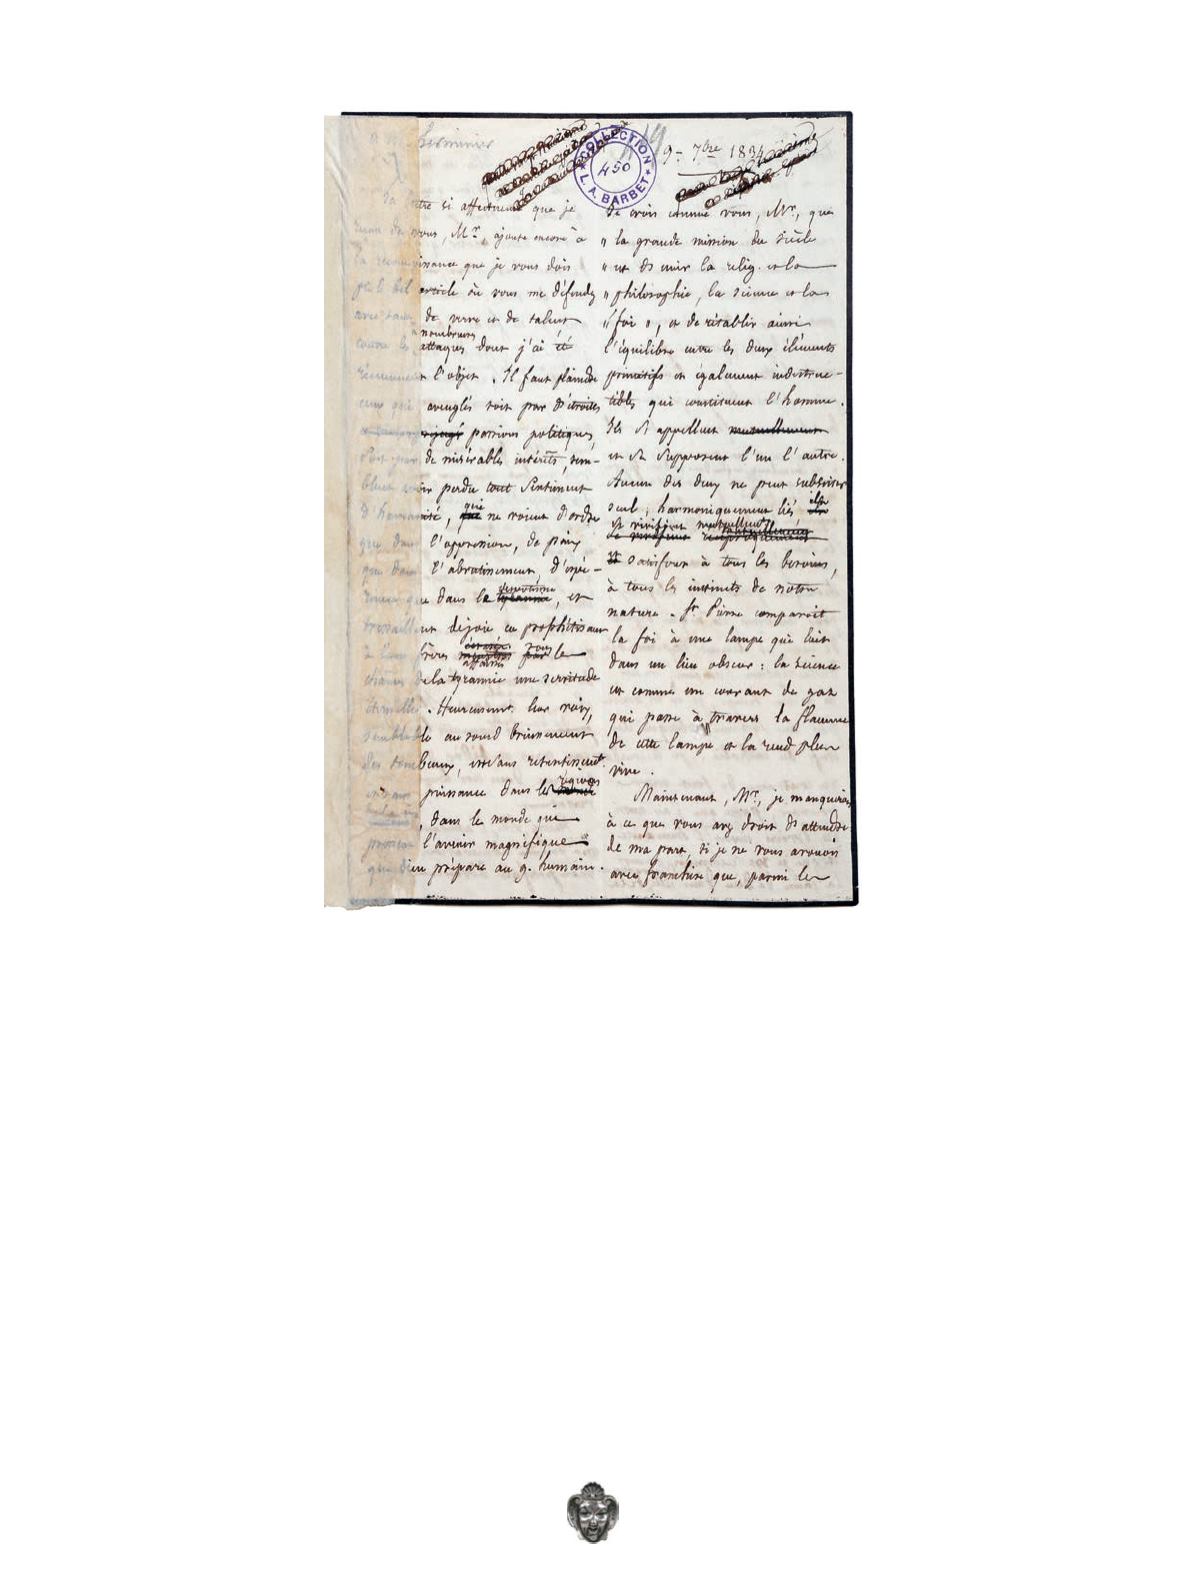 Lerminier
COLLECTION L. A. BARBET
450
9 - 7bre 1834
lettre si affectueuse que je
de vous, Mr, ajoute encore à
la reconnoissance que je vous dois
bel article où vous me défendez
avec de verve et de talent
nombreuses
contre les attaques dont j'ai été
l'objet. Il faut plaindre
ceux qui aveuglés soit par d'étroites
passions politiques,
soit par de misérables intérêts, sem-
blent avoir perdu tout sentiment
qui
d'humanité, ne voient d'ordre
que dans l'oppression, de paix
que dans l'abrutissement, d'espé-
despotisme
rance que dans le tyrannie, et
tressaillent de joie en prophétisant
à leurs frères
affamés
de la tyrannie une servitude
éternelle. Heureusemt. leur voix,
semblable au sourd bruissement
des tombeaux, est sans retentissemt
régions
puissance dans les
, dans le monde qui
l'avenir magnifique
que dieu prépare au g. humain.
Je crois comme vous, Mr, que
" la grande mission du siècle
" est de unir la relig. et la
" philosophie, la science et la
" foi ", et de rétablir ainsi
l'équilibre entre les deux éléments
primitifs et également indestruc-
tibles qui constituent l'homme.
Ils s'appellent mutuellement
et se supposent l'un l'autre.
Aucun des deux ne peut subsister
seul ; harmoniquement liés ils
se vivifient mutuellemt
satisfont à tous les besoins,
à tous les instincts de notre
nature. St Pierre comparoit
la foi à une lampe qui luit
dans un lieu obscur : la science
est comme un courant de gaz
qui passe à travers la flamme
de cette lampe et la rend plus
vive.
Maintenant, Mr, je manquerois
à ce que vous avez droit d'attendre
de ma part, si je ne vous avouois
avec franchise que, parmi les